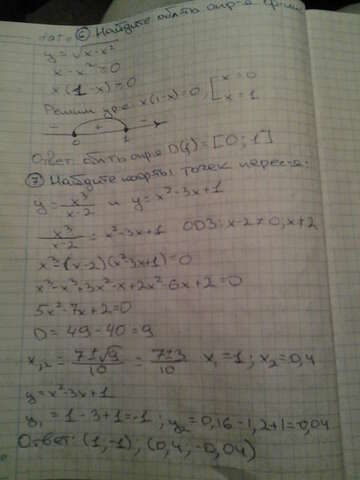 ⑥ Найдите обл опр-я
y = √x-x²
x - x² = 0
x(1-x) = 0
Решим ур-е: x(1-x)=0, [x=0
x=1
- + -
0 1
Ответ: D(y) = [0; 1]
⑦ Найдите точек пересе-я.
y = x³/x-2 и y = x²-3x+1
x³/x-2 = x²-3x+1 ОДЗ: x-2≠0, x≠2
x³-(x-2)(x²-3x+1)=0
x³-x³+3x²-x+2x²-6x+2=0
5x²-7x+2=0
D = 49-40=9
x₁,₂ = 7±√9/10 = 7±3/10 x₁=1; x₂=0,4
y = x²-3x+1
y₁ = 1-3+1=-1; y₂=0,16-1,2+1=0,04
Ответ: (1,-1), (0,4; -0,04)